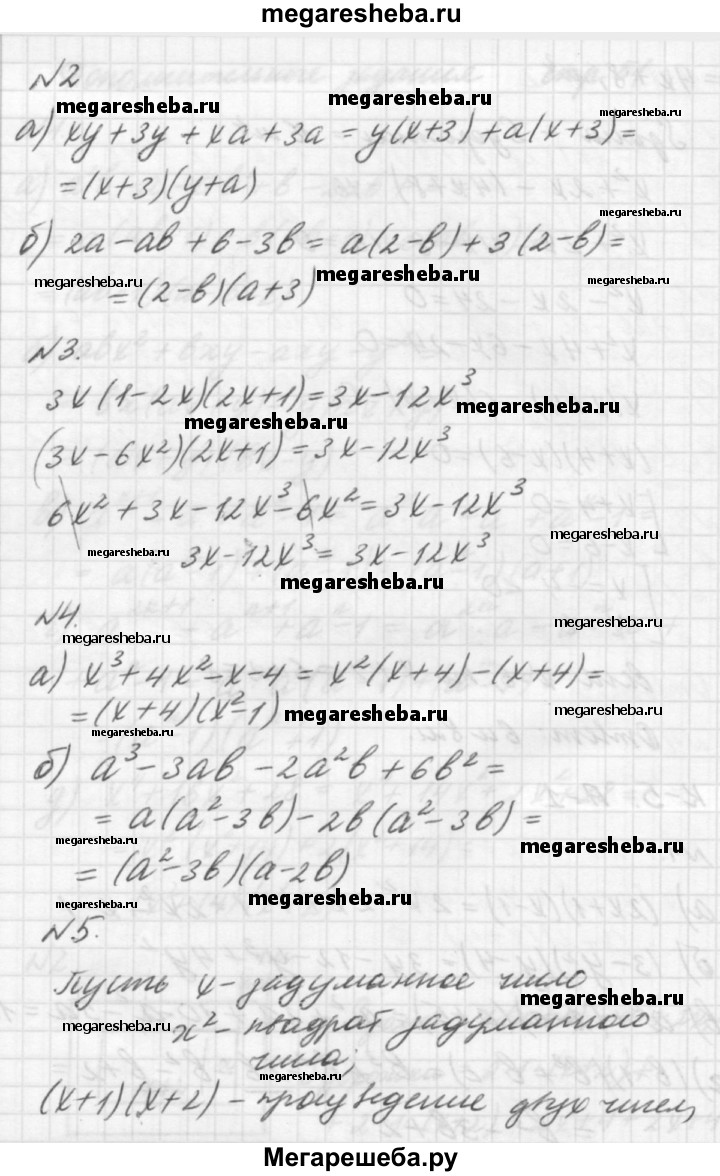 megaresheba.ru
№2
megaresheba.ru megaresheba.ru megaresheba.ru
а) xy + 3y + xa + 3a = y(x+3) + a(x+3) =
= (x+3)(y+a)
megaresheba.ru
б) 2a - ab + 6 - 3b = a(2-b) + 3(2-b) =
megaresheba.ru megaresheba.ru megaresheba.ru
= (2-b)(a+3)
№3.
3x(1-2x)(2x+1) = 3x - 12x³
megaresheba.ru megaresheba.ru
(3x - 6x²)(2x+1) = 3x - 12x³
6x² + 3x - 12x³ - 6x² = 3x - 12x³
megaresheba.ru
megaresheba.ru 3x - 12x³ = 3x - 12x³
megaresheba.ru
№4.
megaresheba.ru megaresheba.ru
а) x³ + 4x² - x - 4 = x²(x+4) - (x+4) =
= (x+4)(x²-1) megaresheba.ru megaresheba.ru
megaresheba.ru
б) a³ - 3ab - 2a²b + 6b² =
= a(a² - 3b) - 2b(a² - 3b) =
megaresheba.ru megaresheba.ru
= (a² - 3b)(a - 2b)
megaresheba.ru
№5.
Пусть x - задуманное число
megaresheba.ru
megaresheba.ru x² - квадрат задуманного
числа;
megaresheba.ru
(x+1)(x+2) - произведение двух чисел,
Мегарешеба.ру